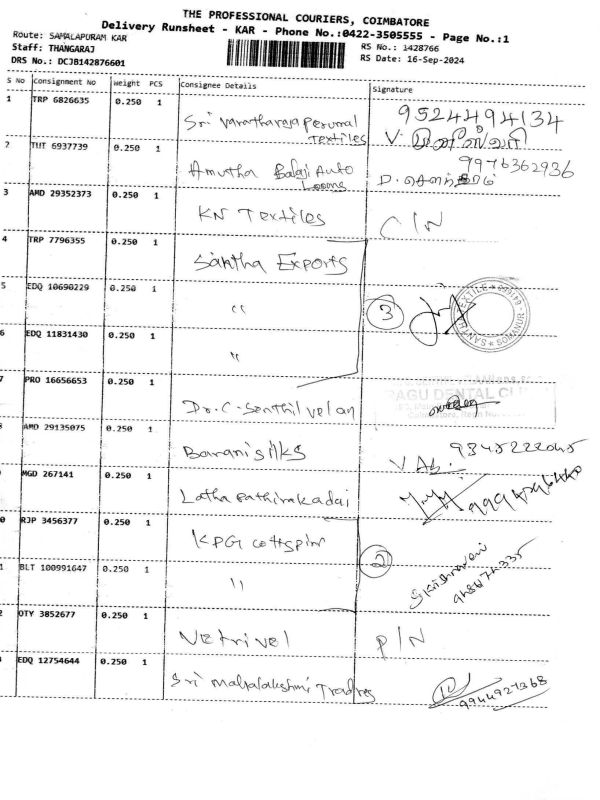 THE PROFESSIONAL COURIERS, COIMBATORE
Delivery Runsheet - KAR - Phone No.:0422-3505555 - Page No.:1
Route: SAMALAPURAM KAR
RS No.: 1428766
Staff: THANGARAJ
RS Date: 16-Sep-2024
DRS No.: DCJB142876601
S No Consignment No Weight PCS Consignee Details Signature
1 TRP 6826635 0.250 1 Sri Varatharaja Perumal Textiles 9524494134
2 TUT 6937739 0.250 1 Amutha Balaji Auto Looms 9976362936
3 AMD 29352373 0.250 1 KN Textiles C/N
4 TRP 7796355 0.250 1 Santha Exports
5 EDQ 10690229 0.250 1 " 3
6 EDQ 11831430 0.250 1 "
7 PRO 16656653 0.250 1 Dr. C. Senthil velan
RAGU DENTAL
8 AMD 29135075 0.250 1 Barani silks
9 MGD 267141 0.250 1 Latha pathirakadai
0 RJP 3456377 0.250 1 KPG cottspin 2
1 BLT 100991647 0.250 1 "
2 OTY 3852677 0.250 1 Vetrivel P/N
EDQ 12754644 0.250 1 Sri Mahalakshmi Traders 9944927368